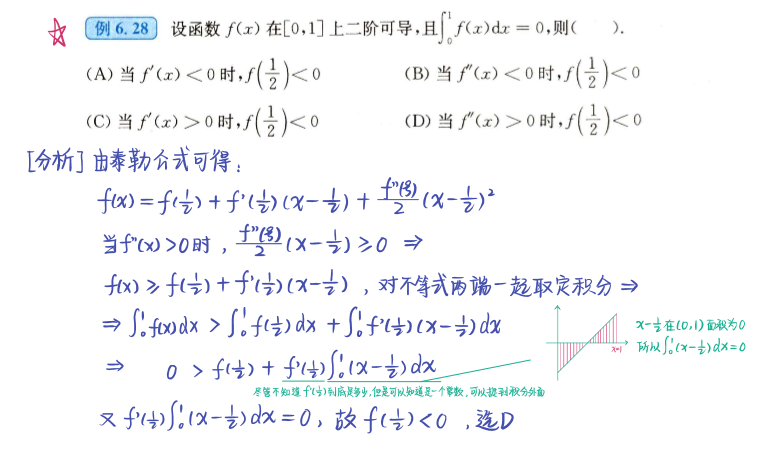 例 6.28 设函数 f(x) 在[0,1]上二阶可导,且∫₀¹f(x)dx = 0,则( ).
(A) 当 f′(x) < 0 时,f(1/2) < 0 (B) 当 f″(x) < 0 时,f(1/2) < 0
(C) 当 f′(x) > 0 时,f(1/2) < 0 (D) 当 f″(x) > 0 时,f(1/2) < 0
[分析] 由泰勒公式可得:
f(x) = f(1/2) + f'(1/2)(x-1/2) + f"(ξ)/2 (x-1/2)²
当f"(x)>0时, f"(ξ)/2 (x-1/2) ⩾ 0 ⇒
f(x) ⩾ f(1/2) + f'(1/2)(x-1/2), 对不等式两端一起取定积分 ⇒
⇒ ∫₀¹f(x)dx > ∫₀¹f(1/2)dx + ∫₀¹f'(1/2)(x-1/2)dx
x-1/2在(0,1)面积为0
所以∫₀¹(x-1/2)dx=0
x=1
⇒ 0 > f(1/2) + f'(1/2)∫₀¹(x-1/2)dx
尽管不知道f'(1/2)到底是多少,但是可以知道是一个常数,可以提到积分外面
又 f'(1/2)∫₀¹(x-1/2)dx=0, 故 f(1/2)<0 ,选D